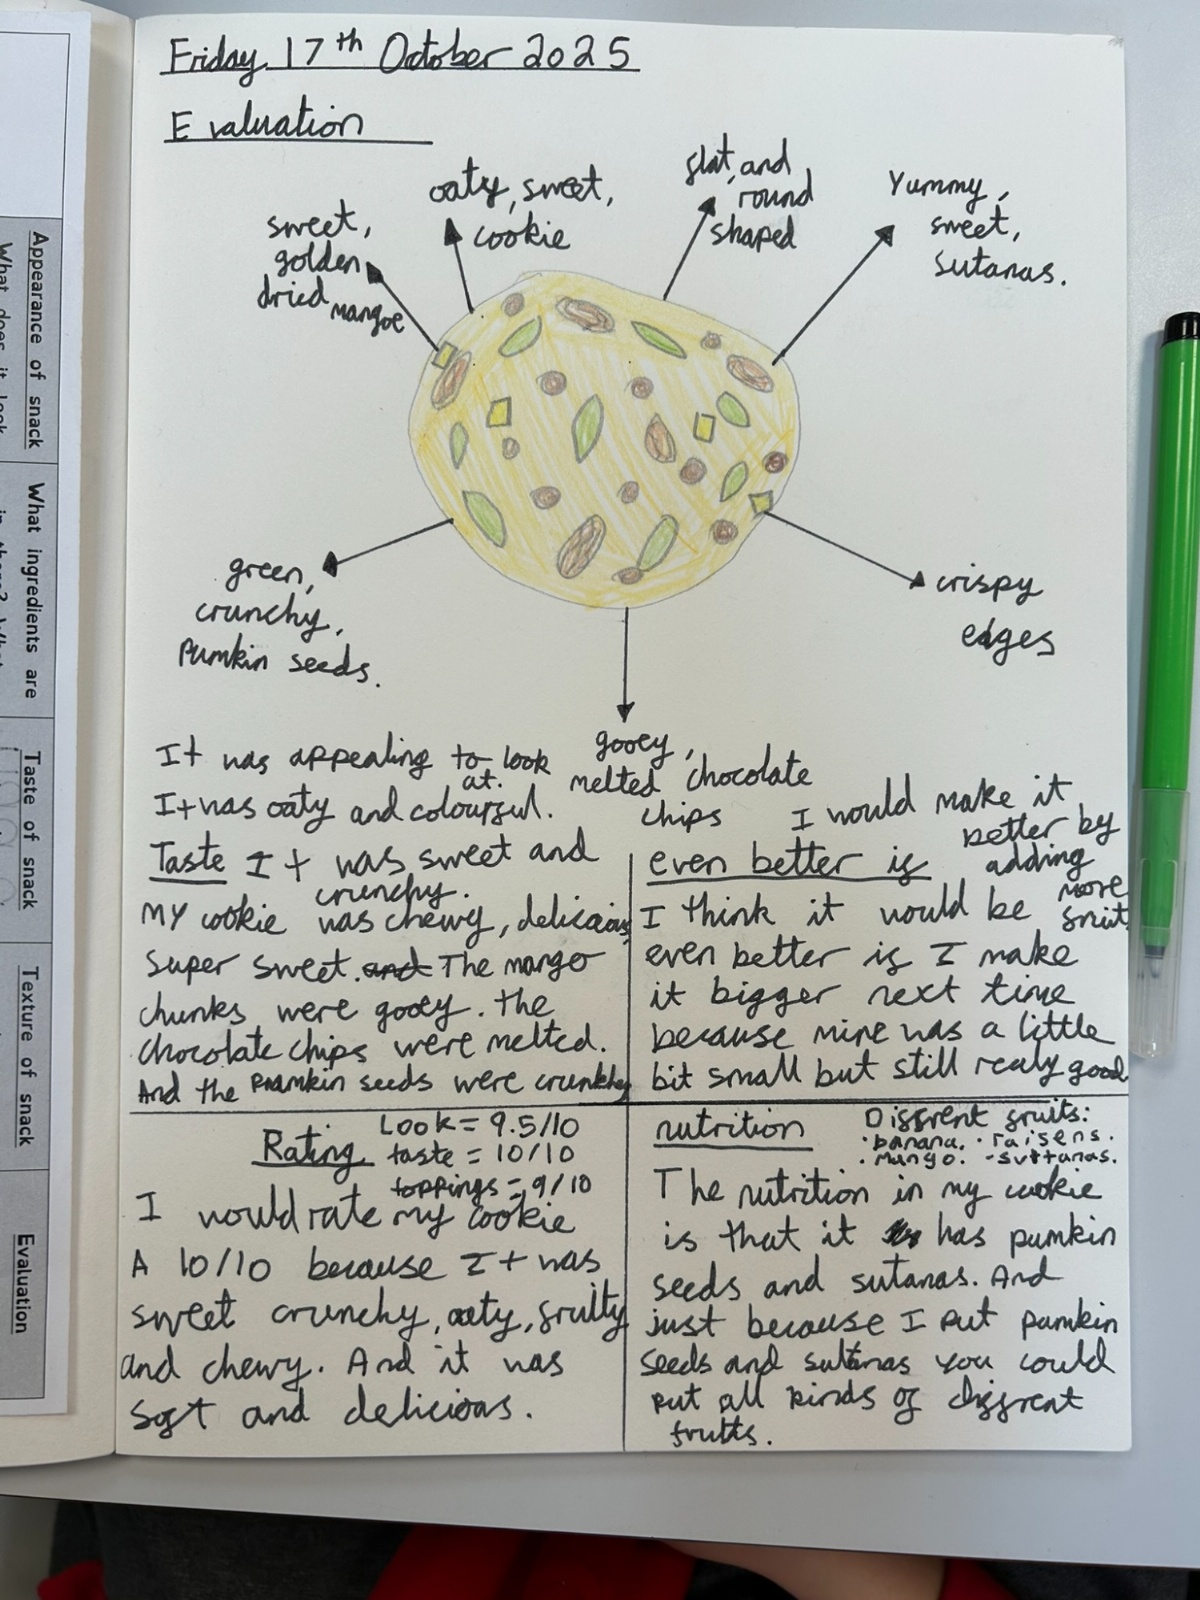 Friday 17th October 2025
Evaluation
sweet,
golden
dried mangoe
oaty, sweet,
cookie
flat, and
round
shaped
Yummy,
sweet,
sutanas.
green,
crunchy,
Pumkin seeds.
crispy
edges
gooey,
melted chocolate
chips
It was appealing to look
at.
It was oaty and colourful.
Taste It was sweet and
crunchy.
MY cookie was chewy, delicious,
super sweet. and The mango
chunks were gooey. the
chocolate chips were melted.
And the pumkin seeds were crunchy
I would make it
better by
adding
more
fruit
even better if
I think it would be
even better if I make
it bigger next time
because mine was a little
bit small but still realy good
Rating
Look = 9.5/10
taste = 10/10
toppings = 9/10
I would rate my cookie
A 10/10 because It was
sweet crunchy, oaty, fruity
and chewy. And it was
soft and delicious.
nutrition
Diffrent fruits:
· banana. · raisens.
· mango. - sultanas.
The nutrition in my cookie
is that it has pumkin
seeds and sutanas. And
just because I put pumkin
seeds and sultanas you could
put all kinds of diffrent
fruits.
Appearance of snack
What does it look
What ingredients are
in there? What
Taste of snack
Texture of snack
Evaluation